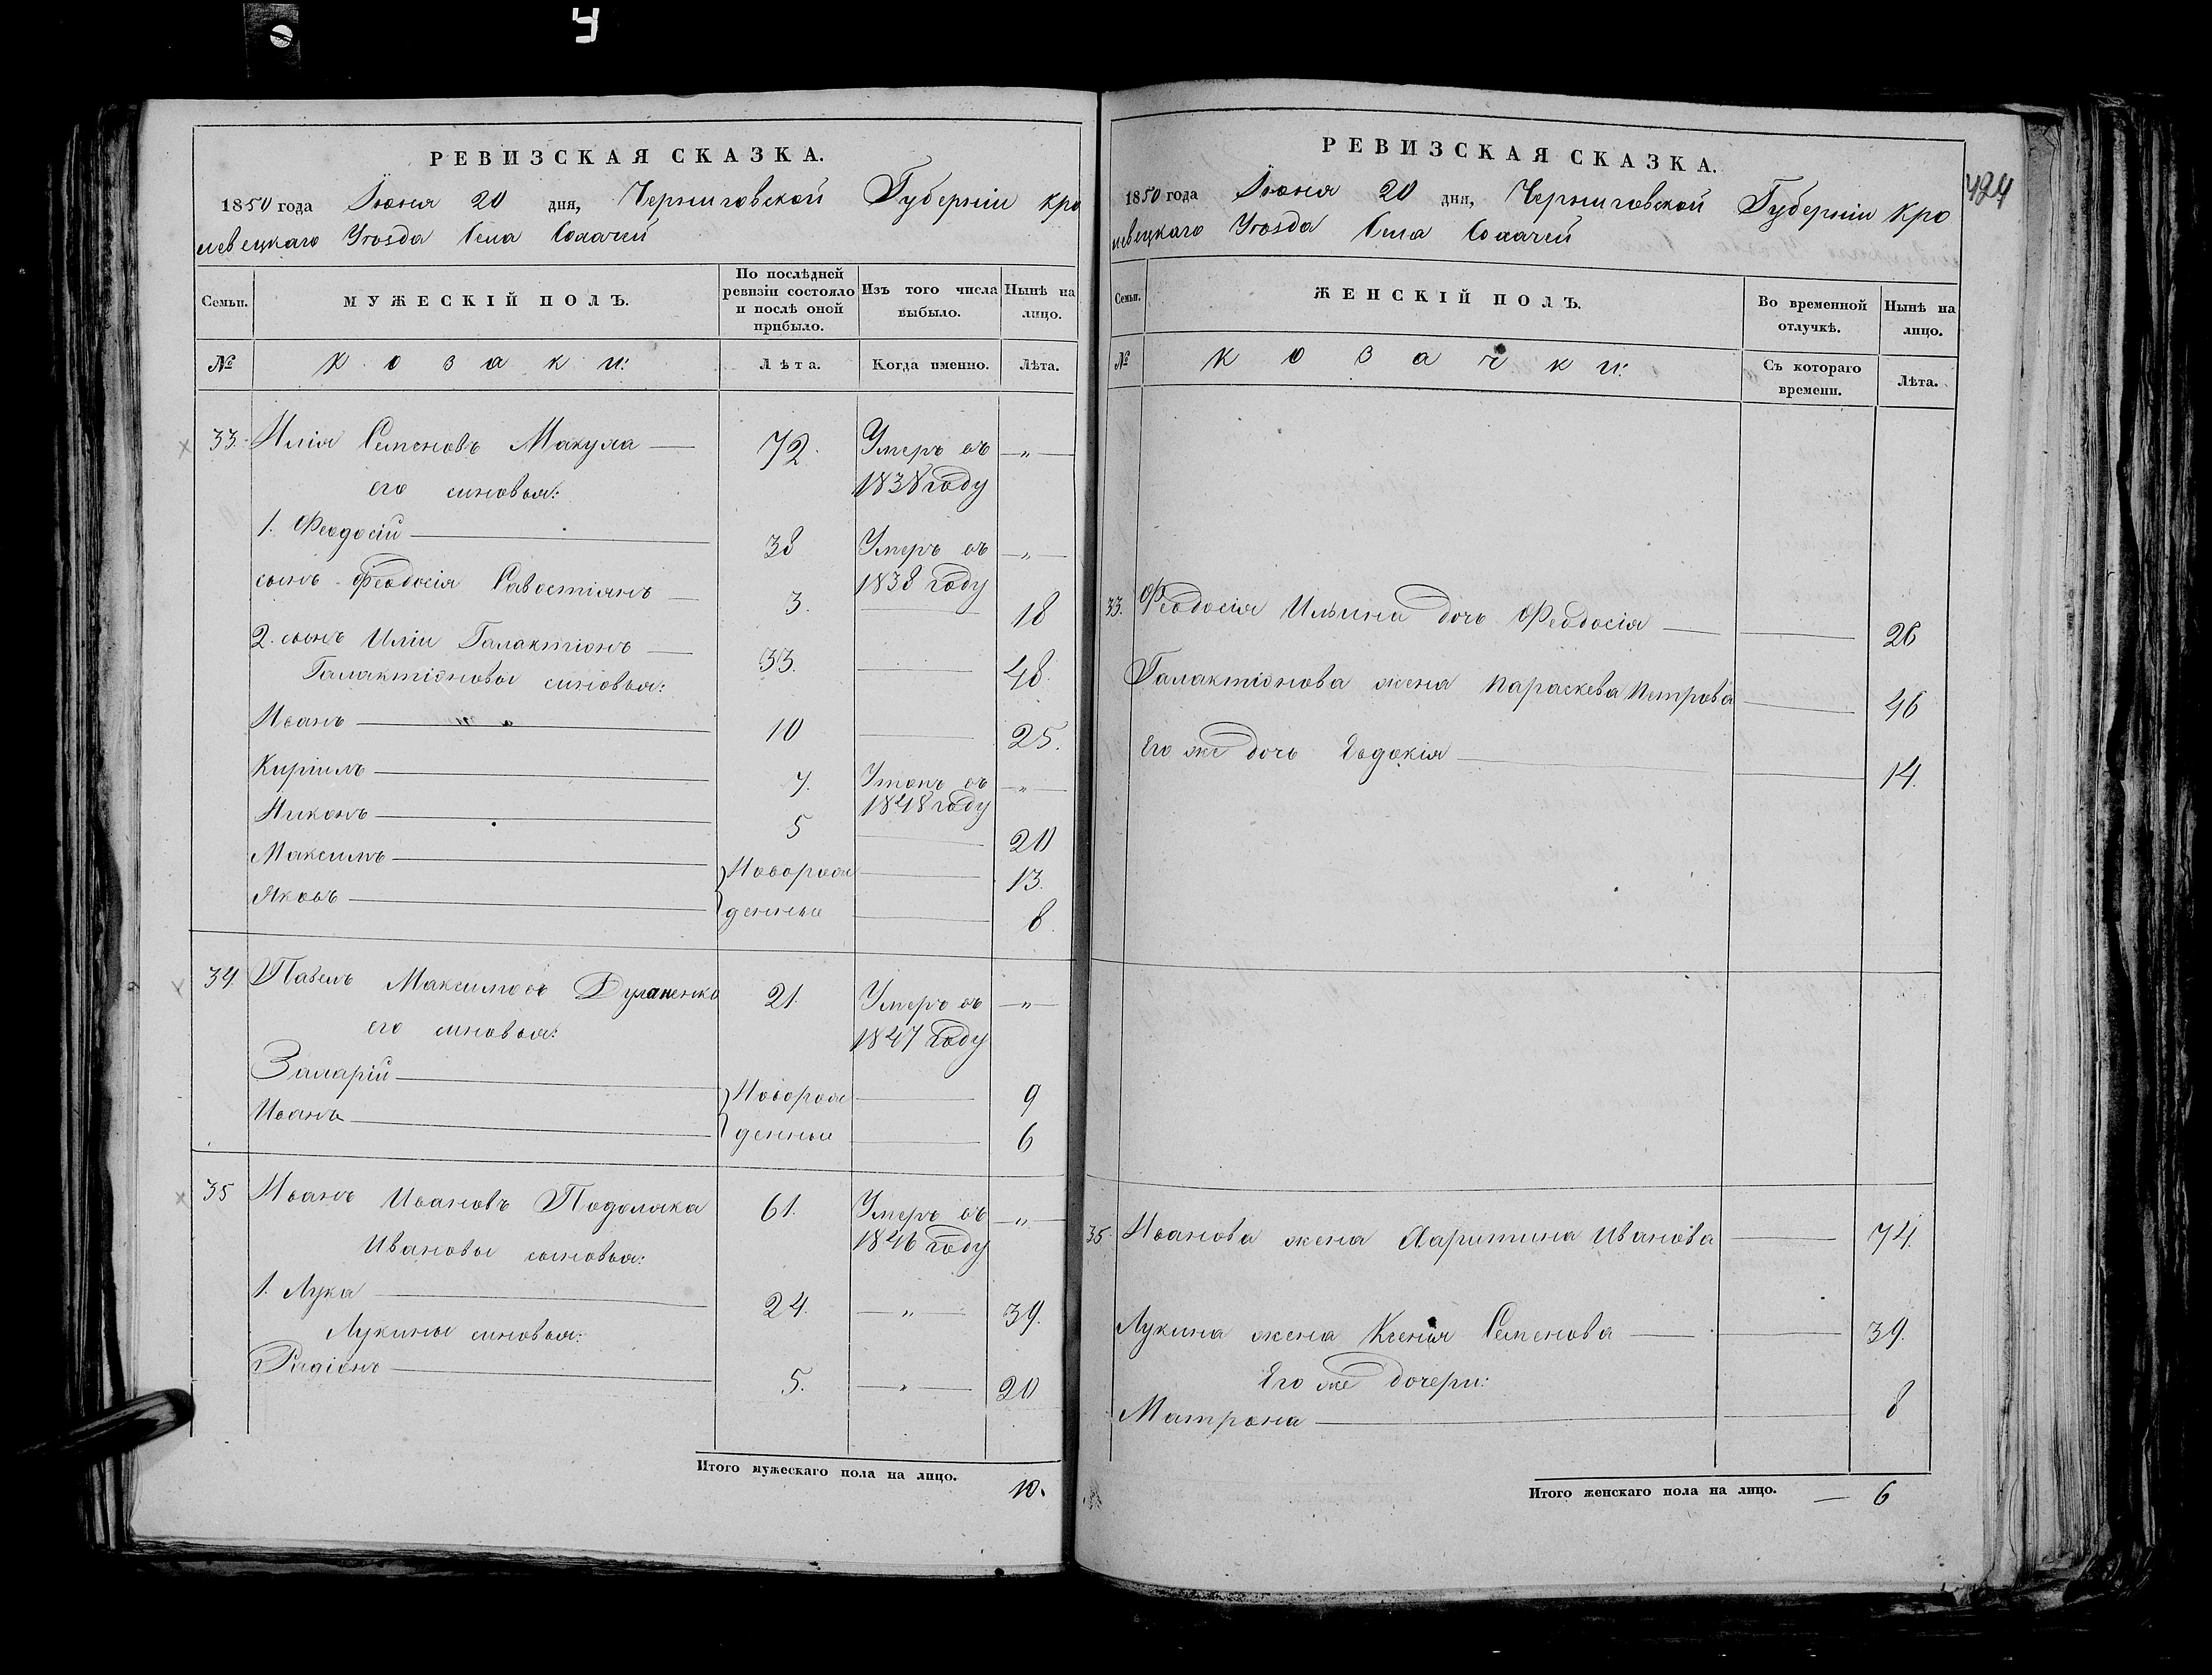 РЕВИЗСКАЯ СКАЗКА.
1850 года Іюня 20 дня, Черниговской Губерніи Кро
левецкаго Уѣзда Села
Семьи. МУЖЕСКІЙ ПОЛЪ. По послѣдней ревизіи состояло и послѣ оной прибыло. Изъ того числа выбыло. Нынѣ на лицо.
№ Козаки: Лѣта. Когда именно. Лѣта.
33. Илія Семеновъ Макуха 72. Умеръ въ „
его синовья: 1838 году
1. Феодосій 38 Умеръ въ „
1838 году
сынъ Феодосія Савостіянъ 3. 18
2. сынъ Иліи Галактіонъ 33. 48.
Галактіоновы синовья:
Иванъ 10 25.
Кирилъ 7. Утопъ въ „
1848 году
Никонъ 5 20
Максимъ Новорож 13.
Яковъ денные 8.
34. Павелъ Максимовъ 21. Умеръ въ „
его синовья: 1847 году
Захарій Новорож 9
Иванъ денные 6
35 Иванъ Ивановъ Подоляка 61. Умеръ въ „
Ивановы сыновья: 1846 году
1. Лука 24. „ 39.
Лукины синовья:
Радіонъ 5. „ 20
Итого мужескаго пола на лицо. 10.
424
РЕВИЗСКАЯ СКАЗКА.
1850 года Іюня 20 дня, Черниговской Губерніи Кро
левецкаго Уѣзда Села
Семьи. ЖЕНСКІЙ ПОЛЪ. Во временной отлучкѣ. Нынѣ на лицо.
№ Козачки: Съ котораго времени. Лѣта.
33. Феодосія Ильина дочь Феодосія 26
Галактіонова жена Параскева Петрова 46
Его же дочь Евдокія 14.
35. Иванова жена Харитина Иванова 74.
Лукина жена Ксенія Семенова 39.
Его же дочери:
Матрона 8
Итого женскаго пола на лицо. — 6